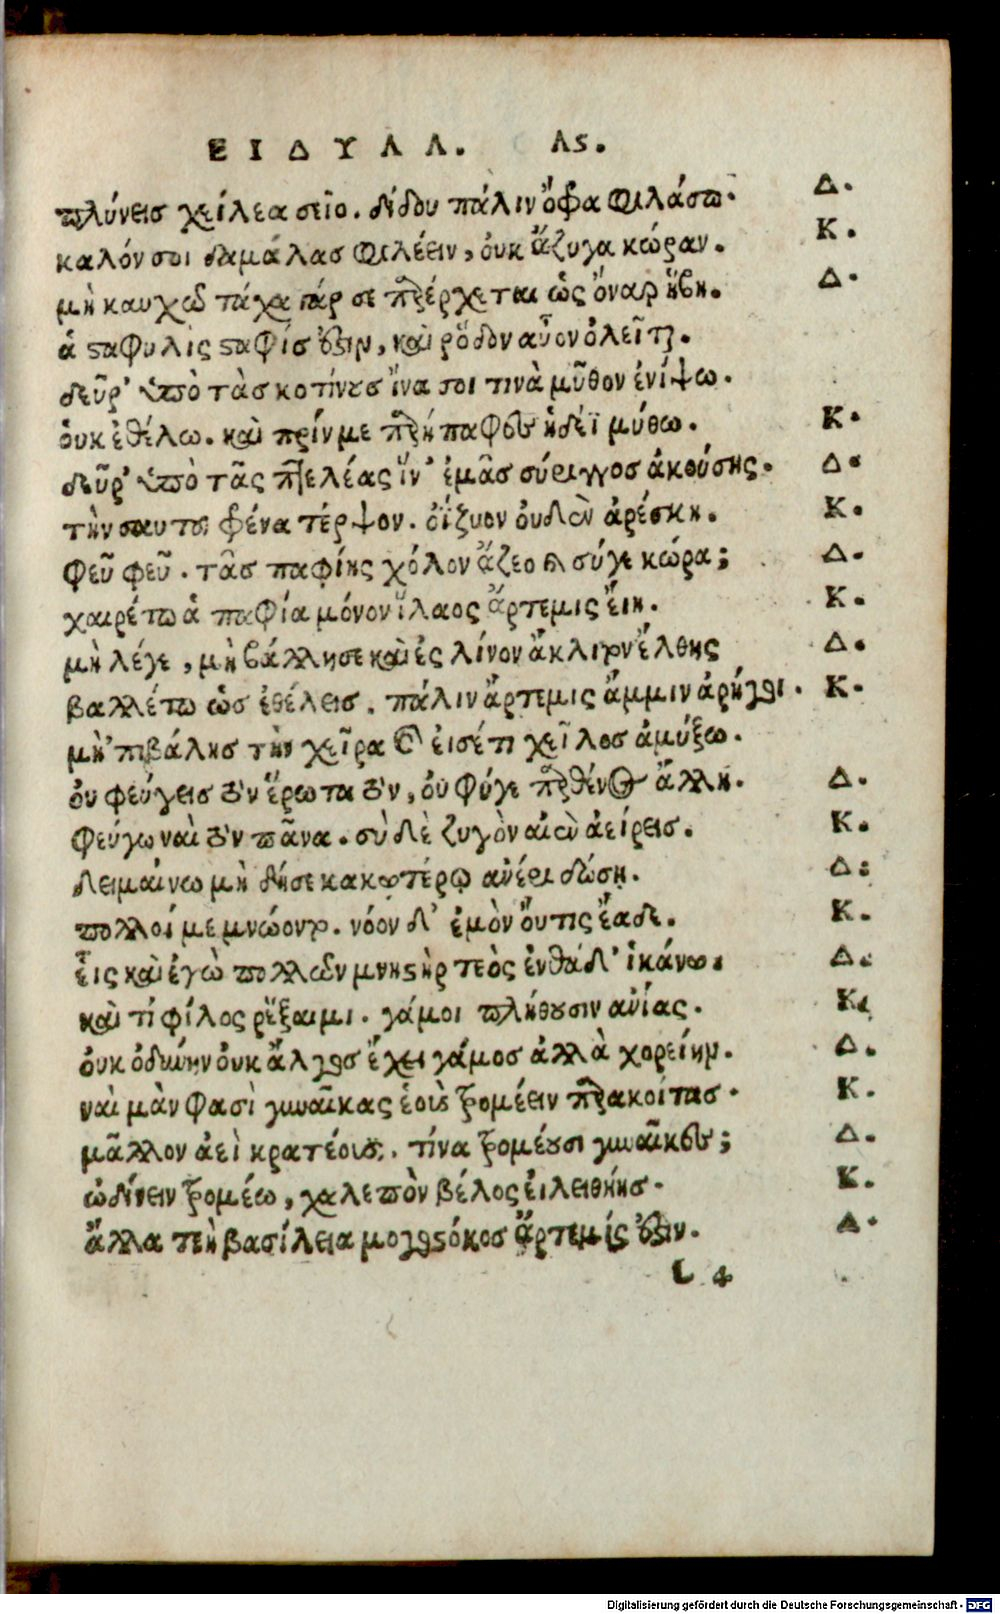 ΕΙΔΥΛΛ. Λς.
πλύνεις χείλεα σεῖο. δίδου πάλιν ὄφρα φιλάσω. Δ.
καλόν σοι δαμάλας φιλέειν, ὀυκ ἄζυγα κώραν. Κ.
μὴ καυχῶ τάχα γάρ σε παρέρχεται ὡς ὄναρ ἥβη. Δ.
ἁ σταφυλὶς σταφίς ἐστιν, καὶ ῥόδον αὖον ὀλεῖται.
δεῦρ' ὑπὸ τὰς κοτίνους ἵνα σοι τινὰ μῦθον ἐνίψω.
ὀυκ ἐθέλω. καὶ πρίν με παρήπαφες ἡδέϊ μύθω. Κ.
δεῦρ' ὑπὸ τᾶς πτελέας ἵν' ἐμᾶς σύριγγος ἀκούσης. Δ.
τὴν σαυτοῦ φρένα τέρψον. ὀΐζυον ὀυδὲν ἀρέσκη. Κ.
φεῦ φεῦ. τᾶς παφίης χόλον ἅζεο καὶ σύγε κώρα; Δ.
χαιρέτω ἁ παφία μόνον ἵλαος ἄρτεμις ἔιη. Κ.
μὴ λέγε, μὴ βάλλησε καὶ ἐς λίνον ἄκλιτον ἔλθης Δ.
βαλλέτω ὡς ἐθέλεις. πάλιν ἄρτεμις ἄμμιν ἀρήγει. Κ.
μὴ 'πιβάλης τὴν χεῖρα καὶ εἰσέτι χεῖλος ἀμύξω.
ὀυ φεύγεις τὸν ἔρωτα τὸν, ὀυ φύγε παρθένος ἄλλη. Δ.
φεύγω ναὶ τὸν πᾶνα. σὺ δὲ ζυγὸν αἰὲν ἀείρεις. Κ.
δειμαίνω μὴ δήσε κακωτέρῳ ἀνέρι δώσῃ. Δ:
πολλοί με μνώοντο. νόον δ' ἐμὸν ὄυτις ἔαδε. Κ.
εἷς καὶ ἐγὼ πολλῶν μνηστὴρ τεὸς ἐνθάδ' ἱκάνω. Δ.
καὶ τί φίλος ῥέξαιμι. γάμοι πλήθουσιν ἀνίας. Κ.
ὀυκ ὀδύνην ὀυκ ἄλγος ἔχει γάμος ἀλλὰ χορείην. Δ.
ναὶ μὰν φασὶ γυναῖκας ἑοὺς τρομέειν παρακοίτας. Κ.
μᾶλλον ἀεὶ κρατέουσι. τίνα τρομέουσι γυναῖκες; Δ.
ὠδίνειν τρομέω, χαλεπὸν βέλος ἐιλειθήης. Κ.
ἄλλα τεὴ βασίλεια μογοστόκος ἄρτεμίς ἐστιν. Δ.
L 4
Digitalisierung gefördert durch die Deutsche Forschungsgemeinschaft - DFG